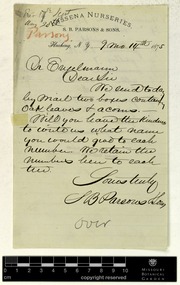 KISSENA NURSERIES.
S. B. PARSONS & SONS,
Flushing, N. Y. 9 mo. 14th 1875
Parsons
Dr Engelmann
Dear Sir
We send today
by mail two boxes containg
oak leaves & acorns.
Will you have the kindness
to write us what name
you would give to each
number. We retain the
numbers here to each
tree.
Yours truly
S B Parsons & Sons
over
MISSOURI
BOTANICAL
GARDEN